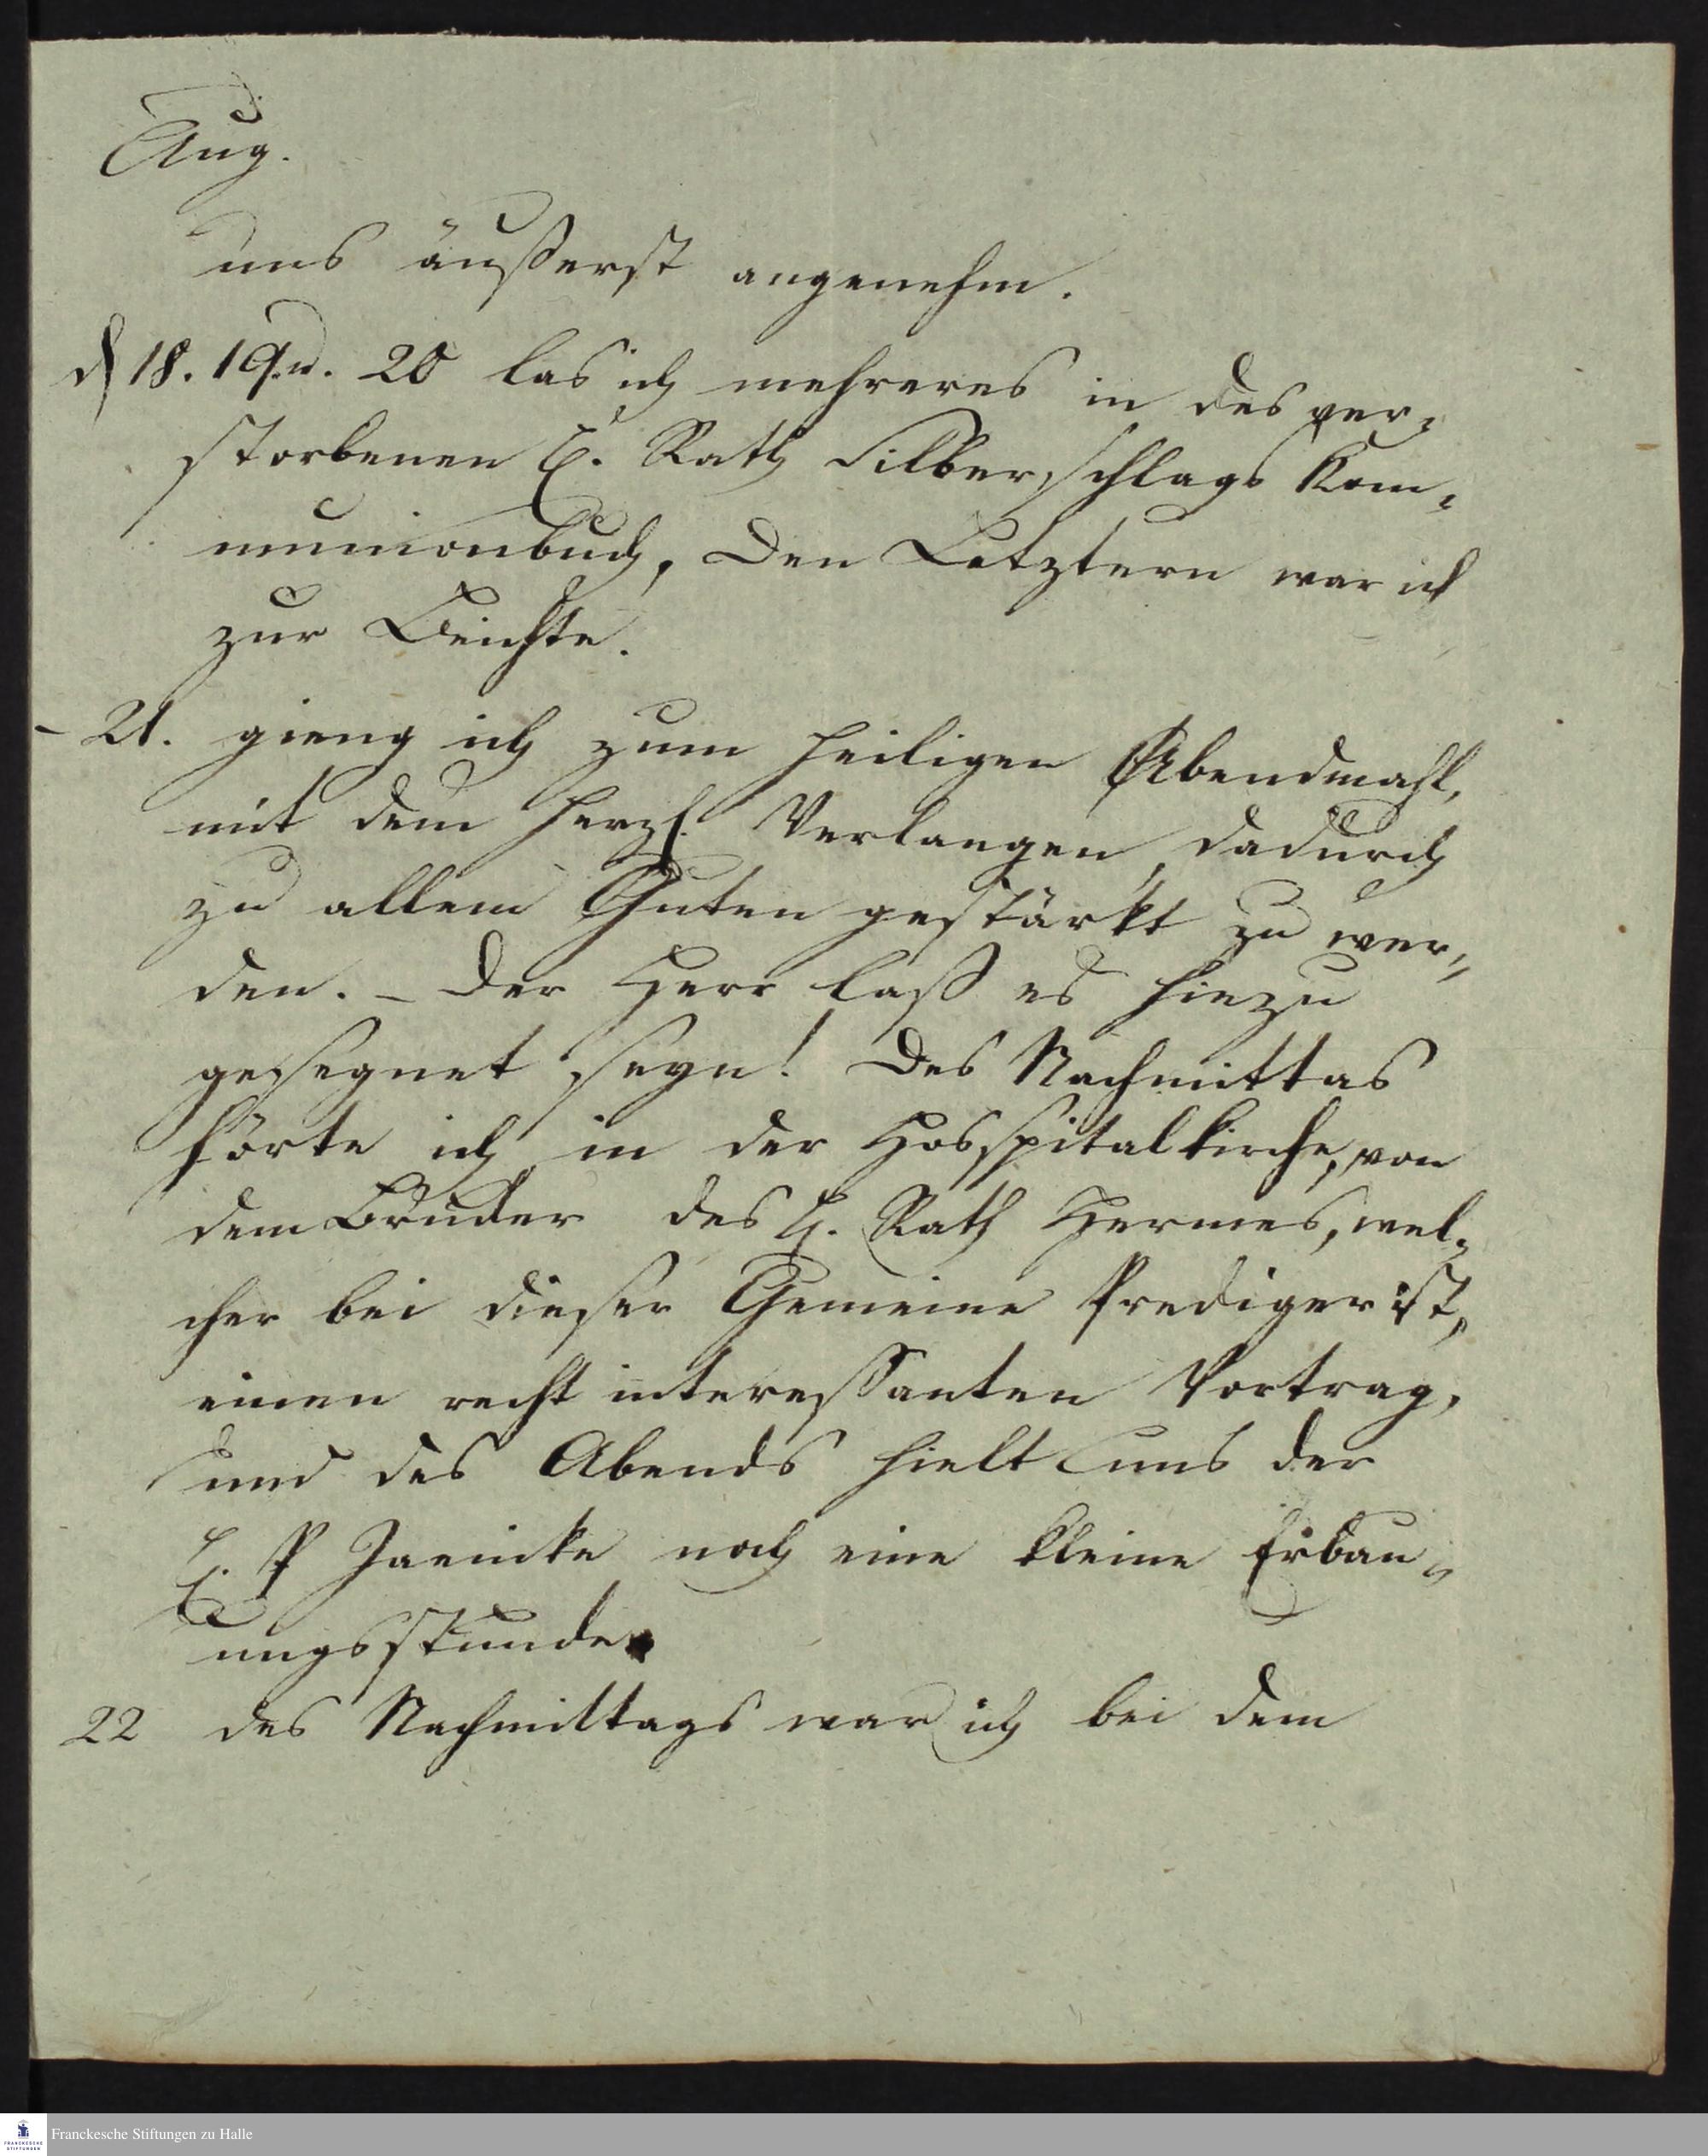 Aug.
uns äußerst angenehm.
d 18. 19. u. 20 las ich mehreres in des ver-
storbenen H. Rath Silberschlags Kom-
munionbuch, den Letztern war ich
zur Beichte.
- 21. gieng ich zum heiligen Abendmahl,
mit dem herzl. Verlangen, dadurch
zu allem Guten gestärkt zu wer-
den. – Der Herr laß es hiezu
gesegnet seyn! Des Nachmittas
hörte ich in der Hosspitalkirche, von
dem Bruder des H. Rath Hermes, wel-
cher bei dieser Gemeine Prediger ist,
einen recht interessanten Vortrag,
und des Abends hielt uns der
H. P Jaenicke noch eine kleine Erbau-
ungsstunde.
22 des Nachmittags war ich bei dem
Franckesche Stiftungen zu Halle